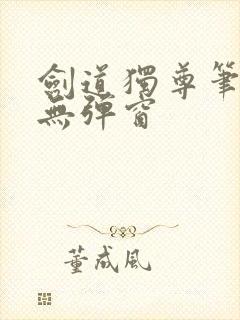 劍道獨尊筆
無彈窗
董成風